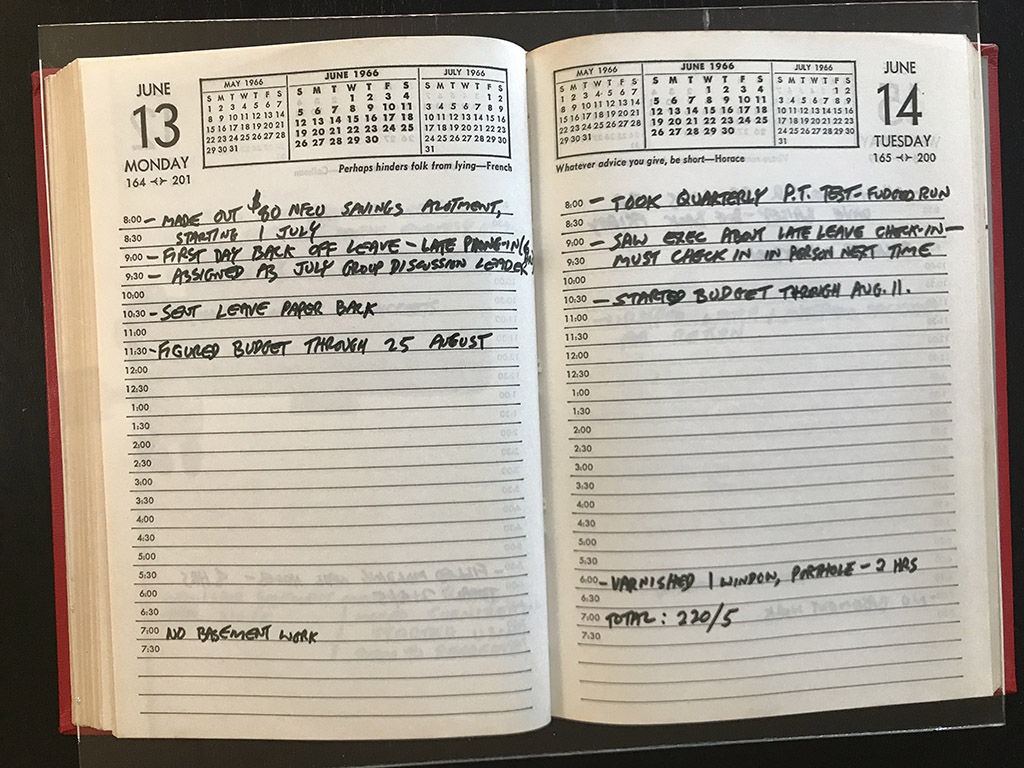 JUNE
13
MONDAY
164 -<>- 201
MAY 1966
S M T W T F S
1 2 3 4 5 6 7
8 9 10 11 12 13 14
15 16 17 18 19 20 21
22 23 24 25 26 27 28
29 30 31
JUNE 1966
S M T W T F S
1 2 3 4
5 6 7 8 9 10 11
12 13 14 15 16 17 18
19 20 21 22 23 24 25
26 27 28 29 30
JULY 1966
S M T W T F S
1 2
3 4 5 6 7 8 9
10 11 12 13 14 15 16
17 18 19 20 21 22 23
24 25 26 27 28 29 30
31
Perhaps hinders folk from lying—French
8:00 – MADE OUT $90 NFCU SAVINGS ALOTMENT,
8:30 STARTING 1 JULY
9:00 – FIRST DAY BACK OFF LEAVE – LATE
9:30 – ASSIGNED AS JULY GROUP DISCUSSION LEADER
10:00
10:30 – SENT LEAVE PAPER BACK
11:00
11:30 – FIGURED BUDGET THROUGH 25 AUGUST
12:00
12:30
1:00
1:30
2:00
2:30
3:00
3:30
4:00
4:30
5:00
5:30
6:00
6:30
7:00 NO BASEMENT WORK
7:30
MAY 1966
S M T W T F S
1 2 3 4 5 6 7
8 9 10 11 12 13 14
15 16 17 18 19 20 21
22 23 24 25 26 27 28
29 30 31
JUNE 1966
S M T W T F S
1 2 3 4
5 6 7 8 9 10 11
12 13 14 15 16 17 18
19 20 21 22 23 24 25
26 27 28 29 30
JULY 1966
S M T W T F S
1 2
3 4 5 6 7 8 9
10 11 12 13 14 15 16
17 18 19 20 21 22 23
24 25 26 27 28 29 30
31
JUNE
14
TUESDAY
165 -<>- 200
Whatever advice you give, be short—Horace
8:00 – TOOK QUARTERLY P.T. TEST – FUDGED RUN
8:30
9:00 – SAW EXEC ABOUT LATE LEAVE CHECK-IN –
9:30 MUST CHECK IN IN PERSON NEXT TIME
10:00
10:30 – STARTED BUDGET THROUGH AUG. 11.
11:00
11:30
12:00
12:30
1:00
1:30
2:00
2:30
3:00
3:30
4:00
4:30
5:00
5:30
6:00 – VARNISHED 1 WINDOW, PORTHOLE – 2 HRS
6:30
7:00 TOTAL: 220/5
7:30